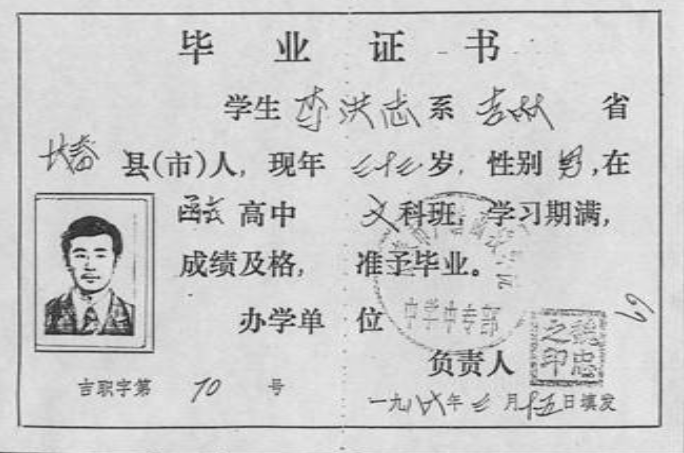 毕业证书
学生 李洪志 系 吉林 省
长春 县(市)人，现年 三十三 岁，性别 男，在
函授 高中 文 科班，学习期满，
成绩及格，准予毕业。
中学中专部
办学单位
负责人 魏忠之印
吉职字第 70 号
一九八六年 三 月 十五 日填发